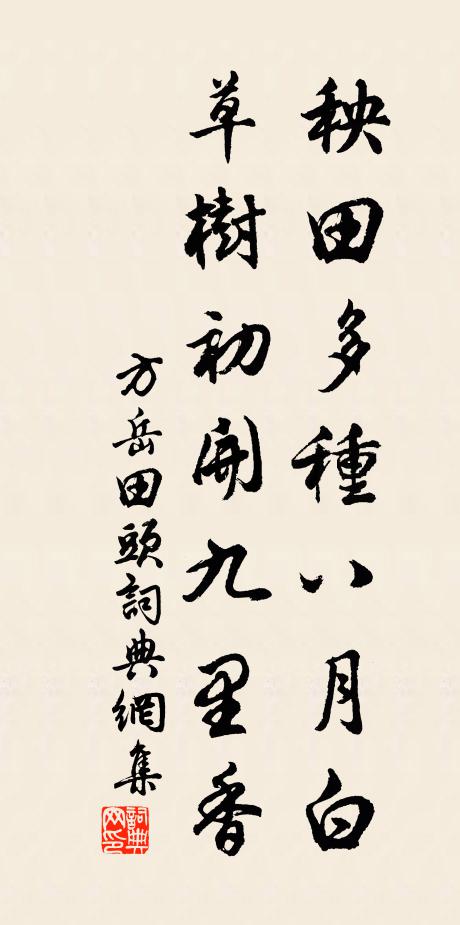 秧田多種八月白
草樹初開九里香
方岳田頭詞典網集
詞典網印